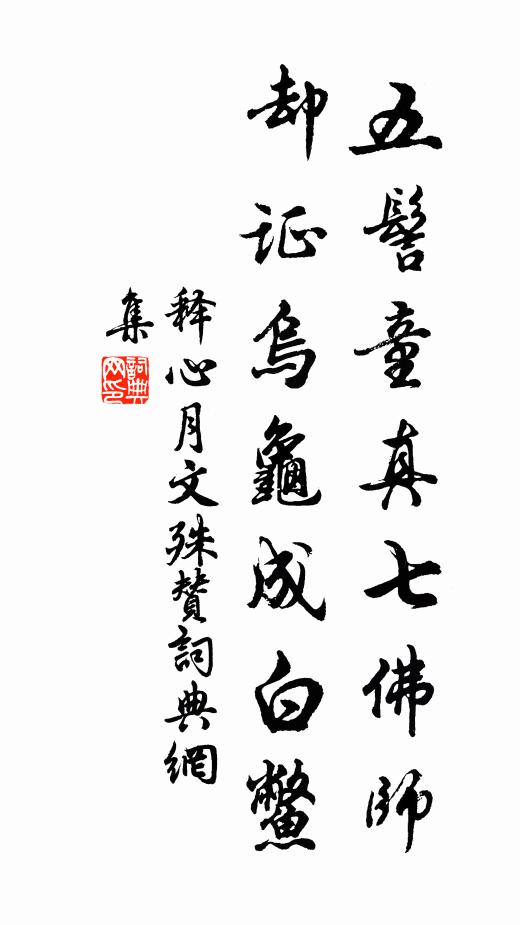 五髻童真七佛師
却证烏龜成白鱉
释心月文殊赞詞典網
集
詞典网印